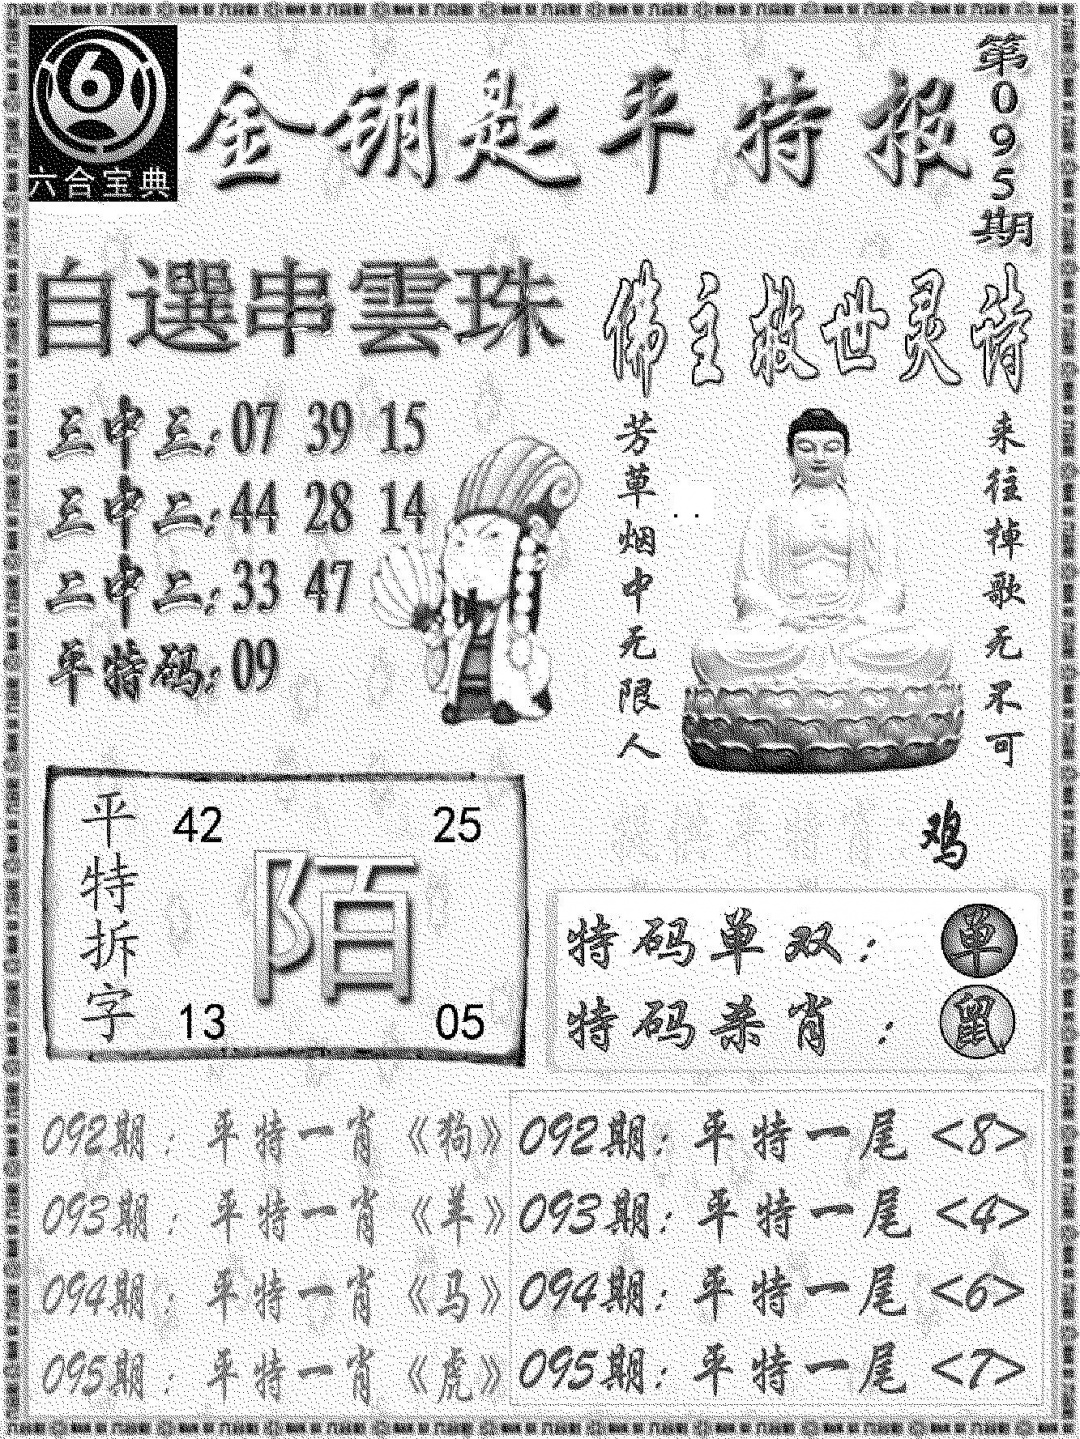 六合宝典
金钥匙平特报
第095期
自選串雲珠
三中三:07 39 15
三中二:44 28 14
二中二:33 47
平特码:09
佛主救世灵诗
来往掉歌无不可
芳草烟中无限人
鸡
平特拆字
42 25
陌
13 05
特码单双: 单
特码杀肖: 鼠
092期:平特一肖《狗》
093期:平特一肖《羊》
094期:平特一肖《马》
095期:平特一肖《虎》
092期:平特一尾<8>
093期:平特一尾<4>
094期:平特一尾<6>
095期:平特一尾<7>